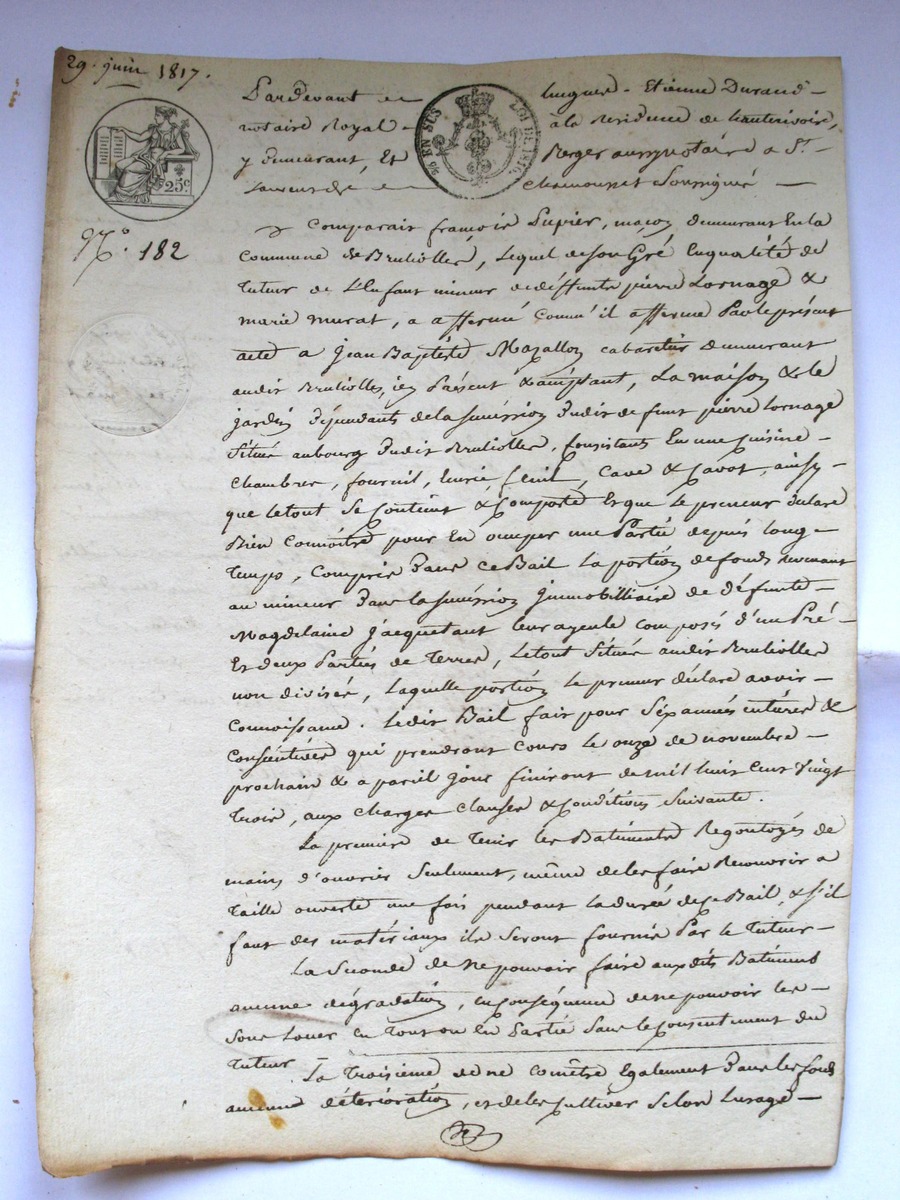 29. juin 1817.
Pardevant et hugues - Etienne Durand -
notaire Royal - à la Residence de hauterivoire,
y demeurant, Et Roger aussy notaire a St.-
Laurens de Chamousset Soussigné -
25c
EN SUS LOI DE 1816
N.° 182
Comparait françois Pupier, maçon demeurant En la
Commune de Bruliolles, Lequel de son Gré En qualité de
tuteur de L'Enfant mineur de deffunts pierre Lornage &
marie murat, a affermé Comm'il afferme Par le présent
acte a Jean Baptiste Mazallon cabaretier demeurant
audit Bruliolles, icy Présent & acceptant, La maison & le
jardin Dépendants de la succession dudit defunt pierre Lornage
Situés au bourg dudit Brulliolles, Consistants En une Cuisine -
Chambres, fournil, Ecurie, fenil, Cave & Cavot, ainsy -
que le tout Se Contient & Comporte Et que le preneur declare
Bien Connoitre pour En occuper une Partie depuis long=
temps, Compris Dans Ce Bail La portion de fonds revenant
au mineur Dans la succession Immobilliaire de Défunte -
Magdelaine Jacquetant leur ayeule composés d'un Pré -
Et deux Parties de Terres, Le tout Située audit Brulliolles
non divisés, Laquelle portion Le preneur déclare avoir -
Connoissance. Ledit Bail fait pour Six années entières &
Consécutives qui prendront Cours Le onze de novembre -
prochain & a pareil jour finiront de mil huit Cent Vingt
Trois, aux Charges Clauses & Conditions Suivante.
La premiere de Tenir les Batiments Regoutoyés de
mains d'ouvrier Seulement, même de les faire Recouvrir a
Taille ouverte une fois pendant la durée de Ce Bail, & s'il
faut des matériaux ils Seront fournis Par le Tuteur -
La Seconde de ne pouvoir faire auxdits Batiments
aucune dégradation, En Conséquence de ne pouvoir les -
Sous Louer En Tout ou En Partie Sans le Consentement du
Tuteur
La Troisième de ne Cométre Egalement Dans les fonds
aucune déterioration, et de les Cultiver Selon Lusage -